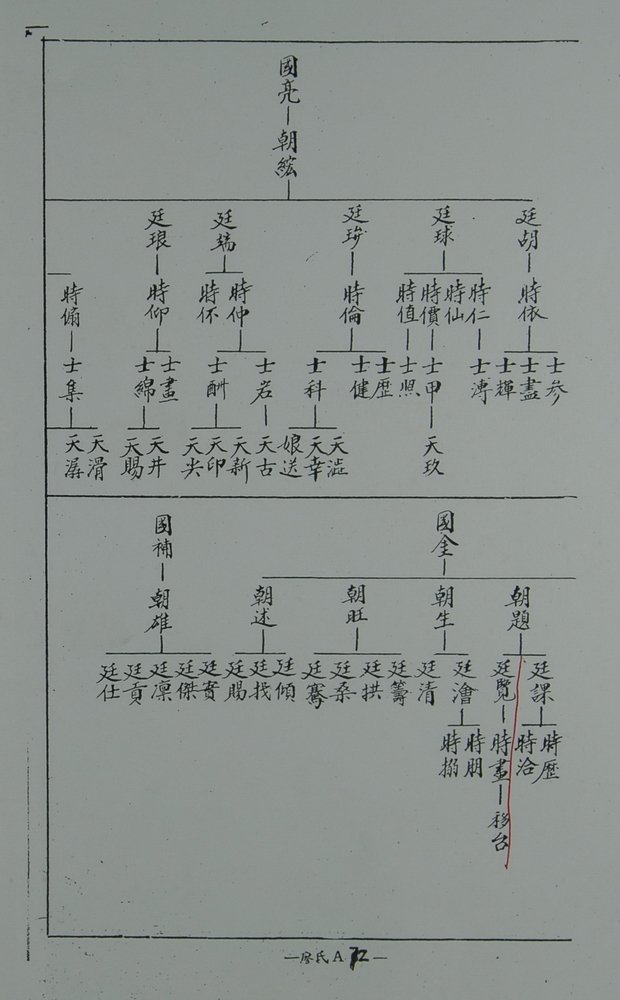 國亮
朝綋
廷胡
廷球
廷珨
廷端
廷琅
時依
時仁
時仙
時價
時值
時倫
時仲
時伓
時仰
時備
士參
士盡
士輝
士漙
士甲
士照
士歷
士健
士科
士岩
士酬
士畫
士綿
士集
天玖
天澁
天幸
娘送
天古
天新
天印
天尖
天井
天賜
天滑
天潺
國金
國補
朝題
朝生
朝旺
朝述
朝雄
廷課
廷覽
廷澮
廷清
廷籌
廷拱
廷桑
廷騫
廷傾
廷找
廷賜
廷實
廷傑
廷凜
廷貢
廷仕
時歷
時洽
時畫
時朋
時搦
移台
—廖氏A72—